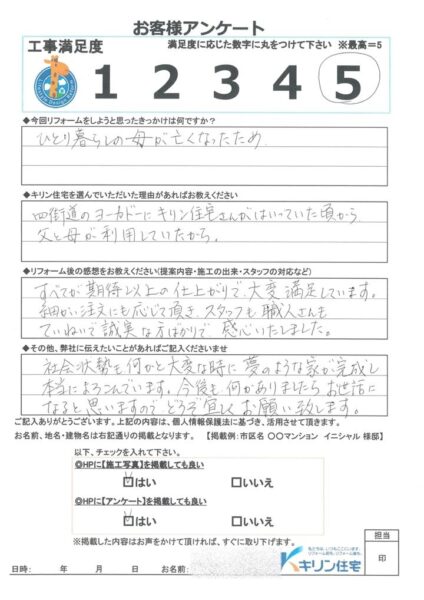 お客様アンケート
工事満足度
満足度に応じた数字に丸をつけて下さい ※最高=5
1 2 3 4 5
◆今回リフォームをしようと思ったきっかけは何ですか?
ひとり暮らしの母が亡くなったため
◆キリン住宅を選んでいただいた理由があればお教えください
四街道のヨーカドーにキリン住宅さんがはいっていた頃から
父と母が利用していたから。
◆リフォーム後の感想をお教えください(提案内容・施工の出来・スタッフの対応など)
すべてが期待以上の仕上がりで、大変満足しています。
細かい注文にも応じて頂き、スタッフも職人さんも
ていねいで誠実な方ばかりで感心いたしました。
◆その他、弊社に伝えたいことがあればご記入くださいませ
社会状勢も何かと大変な時に夢のような家が完成し
本当によろこんでいます。今後も何かありましたらお世話に
なると思いますので、どうぞ宜しくお願い致します。
ご記入ありがとうございます。上記の内容は、個人情報保護法に基づき、活用させて頂きます。
お名前、地名・建物名は右記通りの掲載となります。 【掲載例:市区名 〇〇マンション イニシャル 様邸】
以下、チェックを入れて下さい。
◎HPに【施工写真】を掲載しても良い
☑はい □いいえ
◎HPに【アンケート】を掲載しても良い
☑はい □いいえ
※掲載した内容はお声をかけて頂ければ、すぐに取り下げます。
担当
印
キリン住宅
日時: 年 月 日 お名前: